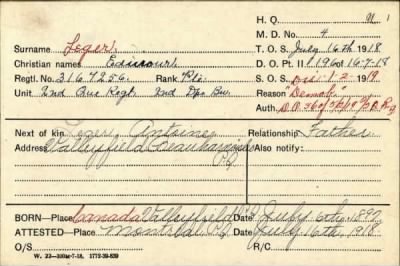 H. Q.
M. D. No. 4
Surname Leger
T. O. S. July 16th 1918
Christian names
D. O. Pt. II 196 of 16-7-18
Regtl. No. 3167256. Rank Pte.
S. O. S. Dis: 1-2-1919
Unit 2nd Que Regt. 2nd Dp. Bn.
Reason "Demob"
Auth. D.O. 36
Next of kin Leger, Antoine
Relationship Father
Address Valleyfield Beauharnois
P.Q.
Also notify:
BORN—Place Canada Valleyfield P.Q. Date July 6th, 1897
ATTESTED—Place Montreal P.Q. Date July 16th, 1918.
O/S
R/C
W. 23—300M-7-18. 1772-39-839